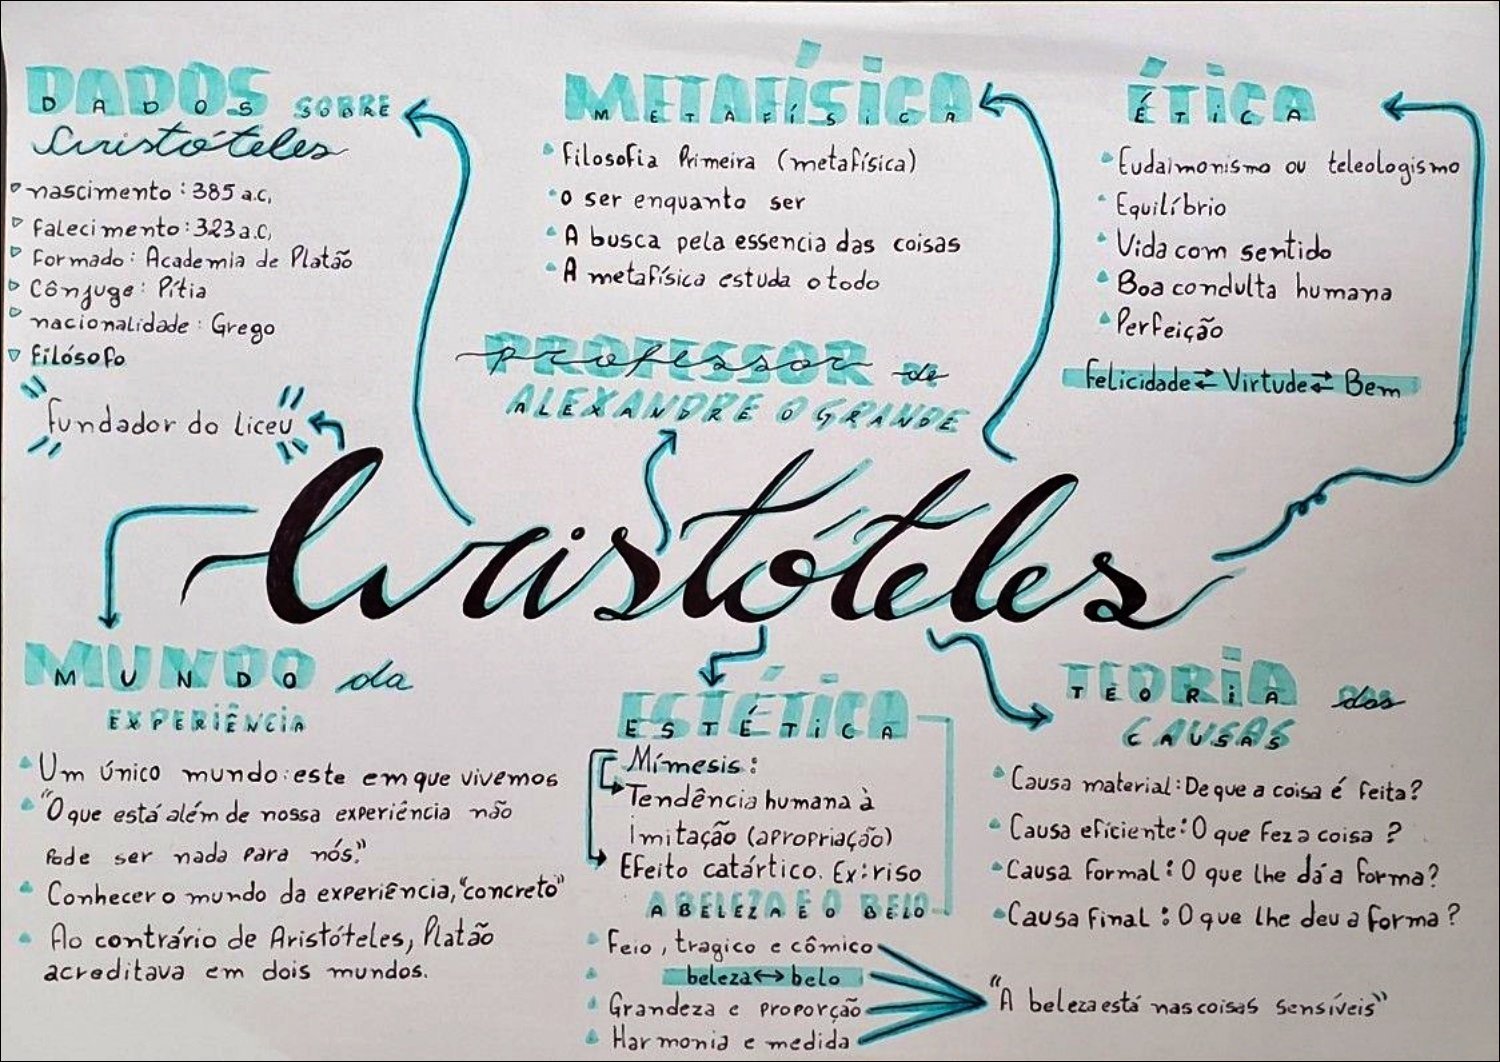 DADOS SOBRE
Aristóteles
nascimento: 385 a.C,
falecimento: 323 a.C,
formado: Academia de Platão
Cônjuge: Pítia
nacionalidade: Grego
filósofo
fundador do liceu
METAFÍSICA
Filosofia Primeira (metafísica)
O ser enquanto ser
A busca pela essencia das coisas
A metafísica estuda o todo
PROFESSOR de
ALEXANDRE O GRANDE
ÉTICA
Eudaimonismo ou teleologismo
Equilíbrio
Vida com sentido
Boa condulta humana
Perfeição
felicidade ⇄ Virtude ⇄ Bem
Aristóteles
MUNDO da
EXPERIÊNCIA
Um único mundo: este em que vivemos
"O que está além de nossa experiência não
pode ser nada para nós."
Conhecer o mundo da experiência, "concreto"
Ao contrário de Aristóteles, Platão
acreditava em dois mundos.
ESTÉTICA
Mímesis:
Tendência humana à
imitação (apropriação)
Efeito catártico. Ex: riso
A BELEZA E O BELO
Feio, tragico e cômico
beleza ↔ belo
Grandeza e proporção
Harmonia e medida
"A beleza está nas coisas sensíveis"
TEORIA das
CAUSAS
Causa material: De que a coisa é feita?
Causa eficiente: O que fez a coisa ?
Causa formal: O que lhe dá a forma?
Causa final: O que lhe deu a forma?